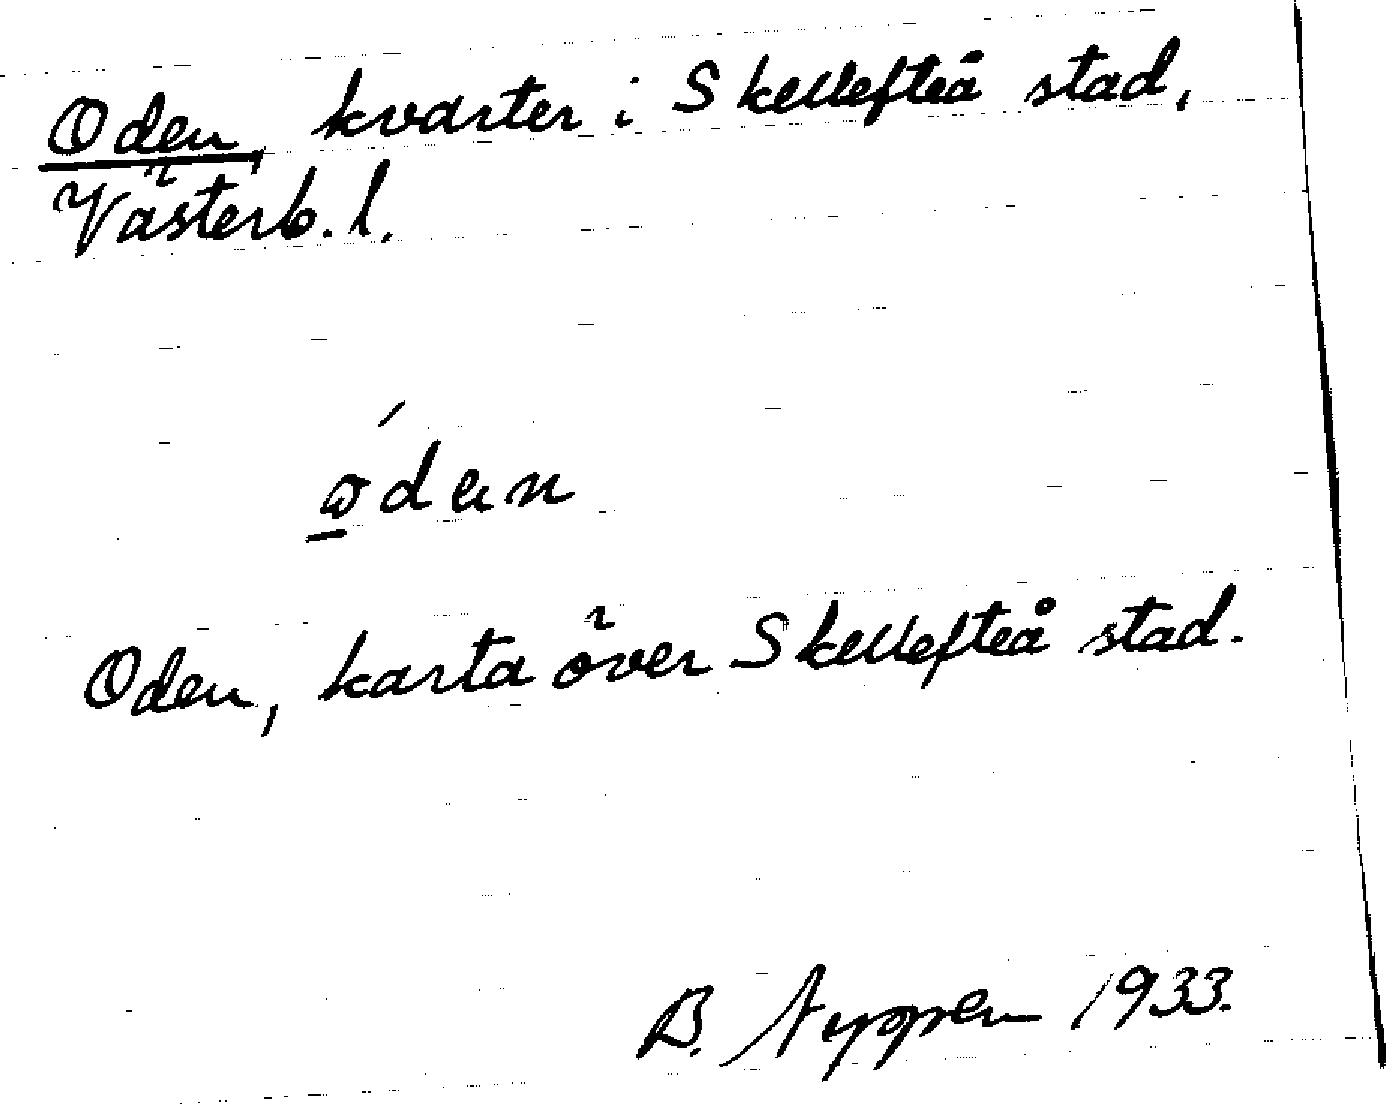 Oden, kvarter i Skellefteå stad,
Västerb. l.
ódan
Oden, karta över Skellefteå stad.
B. 1933.